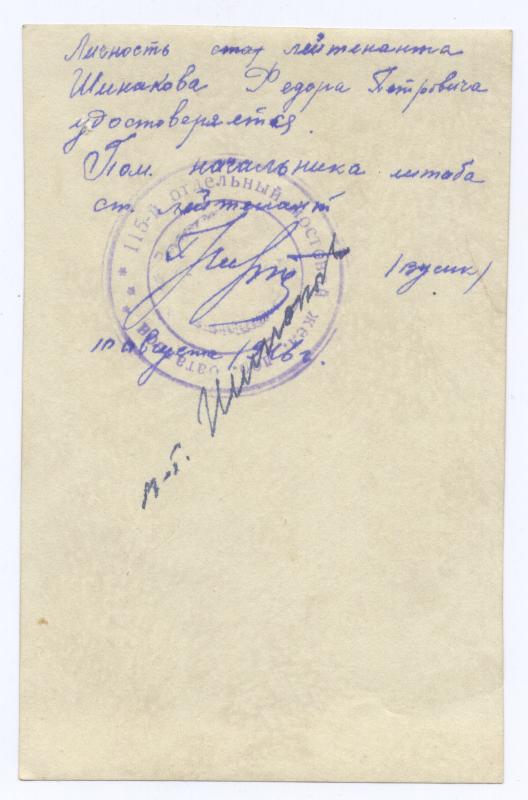 Личность стар лейтенанта
Шинакова Федора Петровича
удостоверяется.
Пом. начальника штаба
ст. лейтенант
/ Гусик /
10 августа 1946 г.
115-й отдельный мостовой жел. бата
к-т. Шинаков